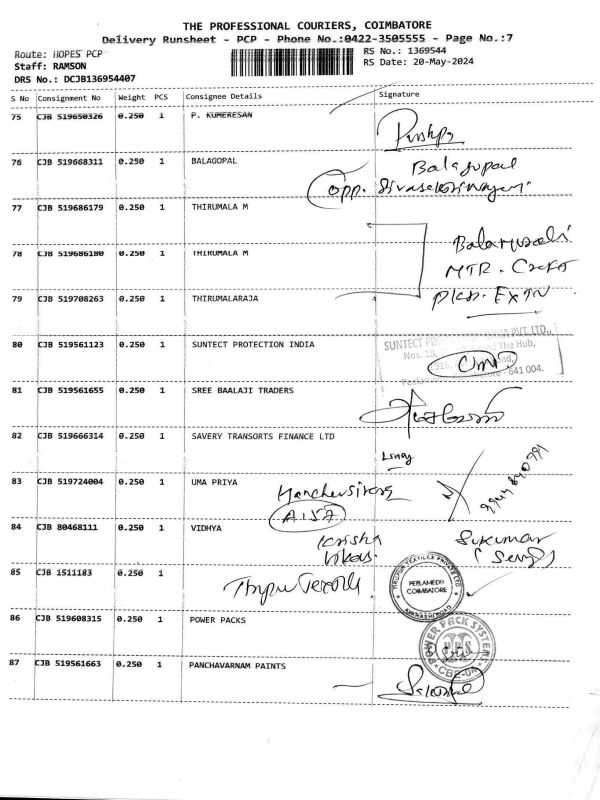 THE PROFESSIONAL COURIERS, COIMBATORE
Delivery Runsheet - PCP - Phone No.:0422-3505555 - Page No.:7
Route: HOPES PCP
Staff: RAMSON
DRS No.: DCJB136954407
RS No.: 1369544
RS Date: 20-May-2024
S No Consignment No Weight PCS Consignee Details Signature
75 CJB 519650326 0.250 1 P. KUMERESAN
76 CJB 519668311 0.250 1 BALAGOPAL Balagopal
Opp.
77 CJB 519686179 0.250 1 THIRUMALA M
78 CJB 519686180 0.250 1 THIRUMALA M
MTR.
79 CJB 519708263 0.250 1 THIRUMALARAJA
EXTN
80 CJB 519561123 0.250 1 SUNTECT PROTECTION INDIA
SUNTECT PVT. LTD.,
The Hub,
641 004.
81 CJB 519561655 0.250 1 SREE BAALAJI TRADERS
82 CJB 519666314 0.250 1 SAVERY TRANSORTS FINANCE LTD
83 CJB 519724004 0.250 1 UMA PRIYA
84 CJB 80468111 0.250 1 VIDHYA
Sukumar
85 CJB 1511183 0.250 1
PEELAMEDU
COIMBATORE
86 CJB 519608315 0.250 1 POWER PACKS
POWER PACK SYSTEMS
PPS
CBE-04
87 CJB 519561663 0.250 1 PANCHAVARNAM PAINTS